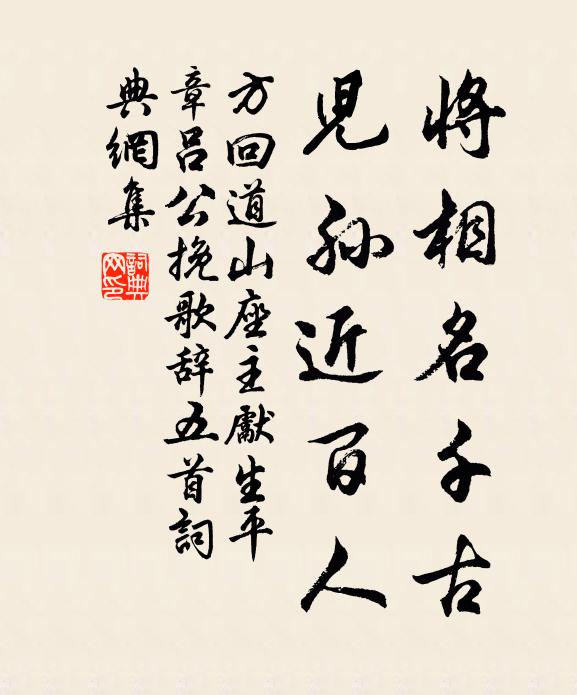 將相名千古
兒孫近百人
方回道山座主獻生平
章呂公挽歌辞五首詞
典網集
詞典网印